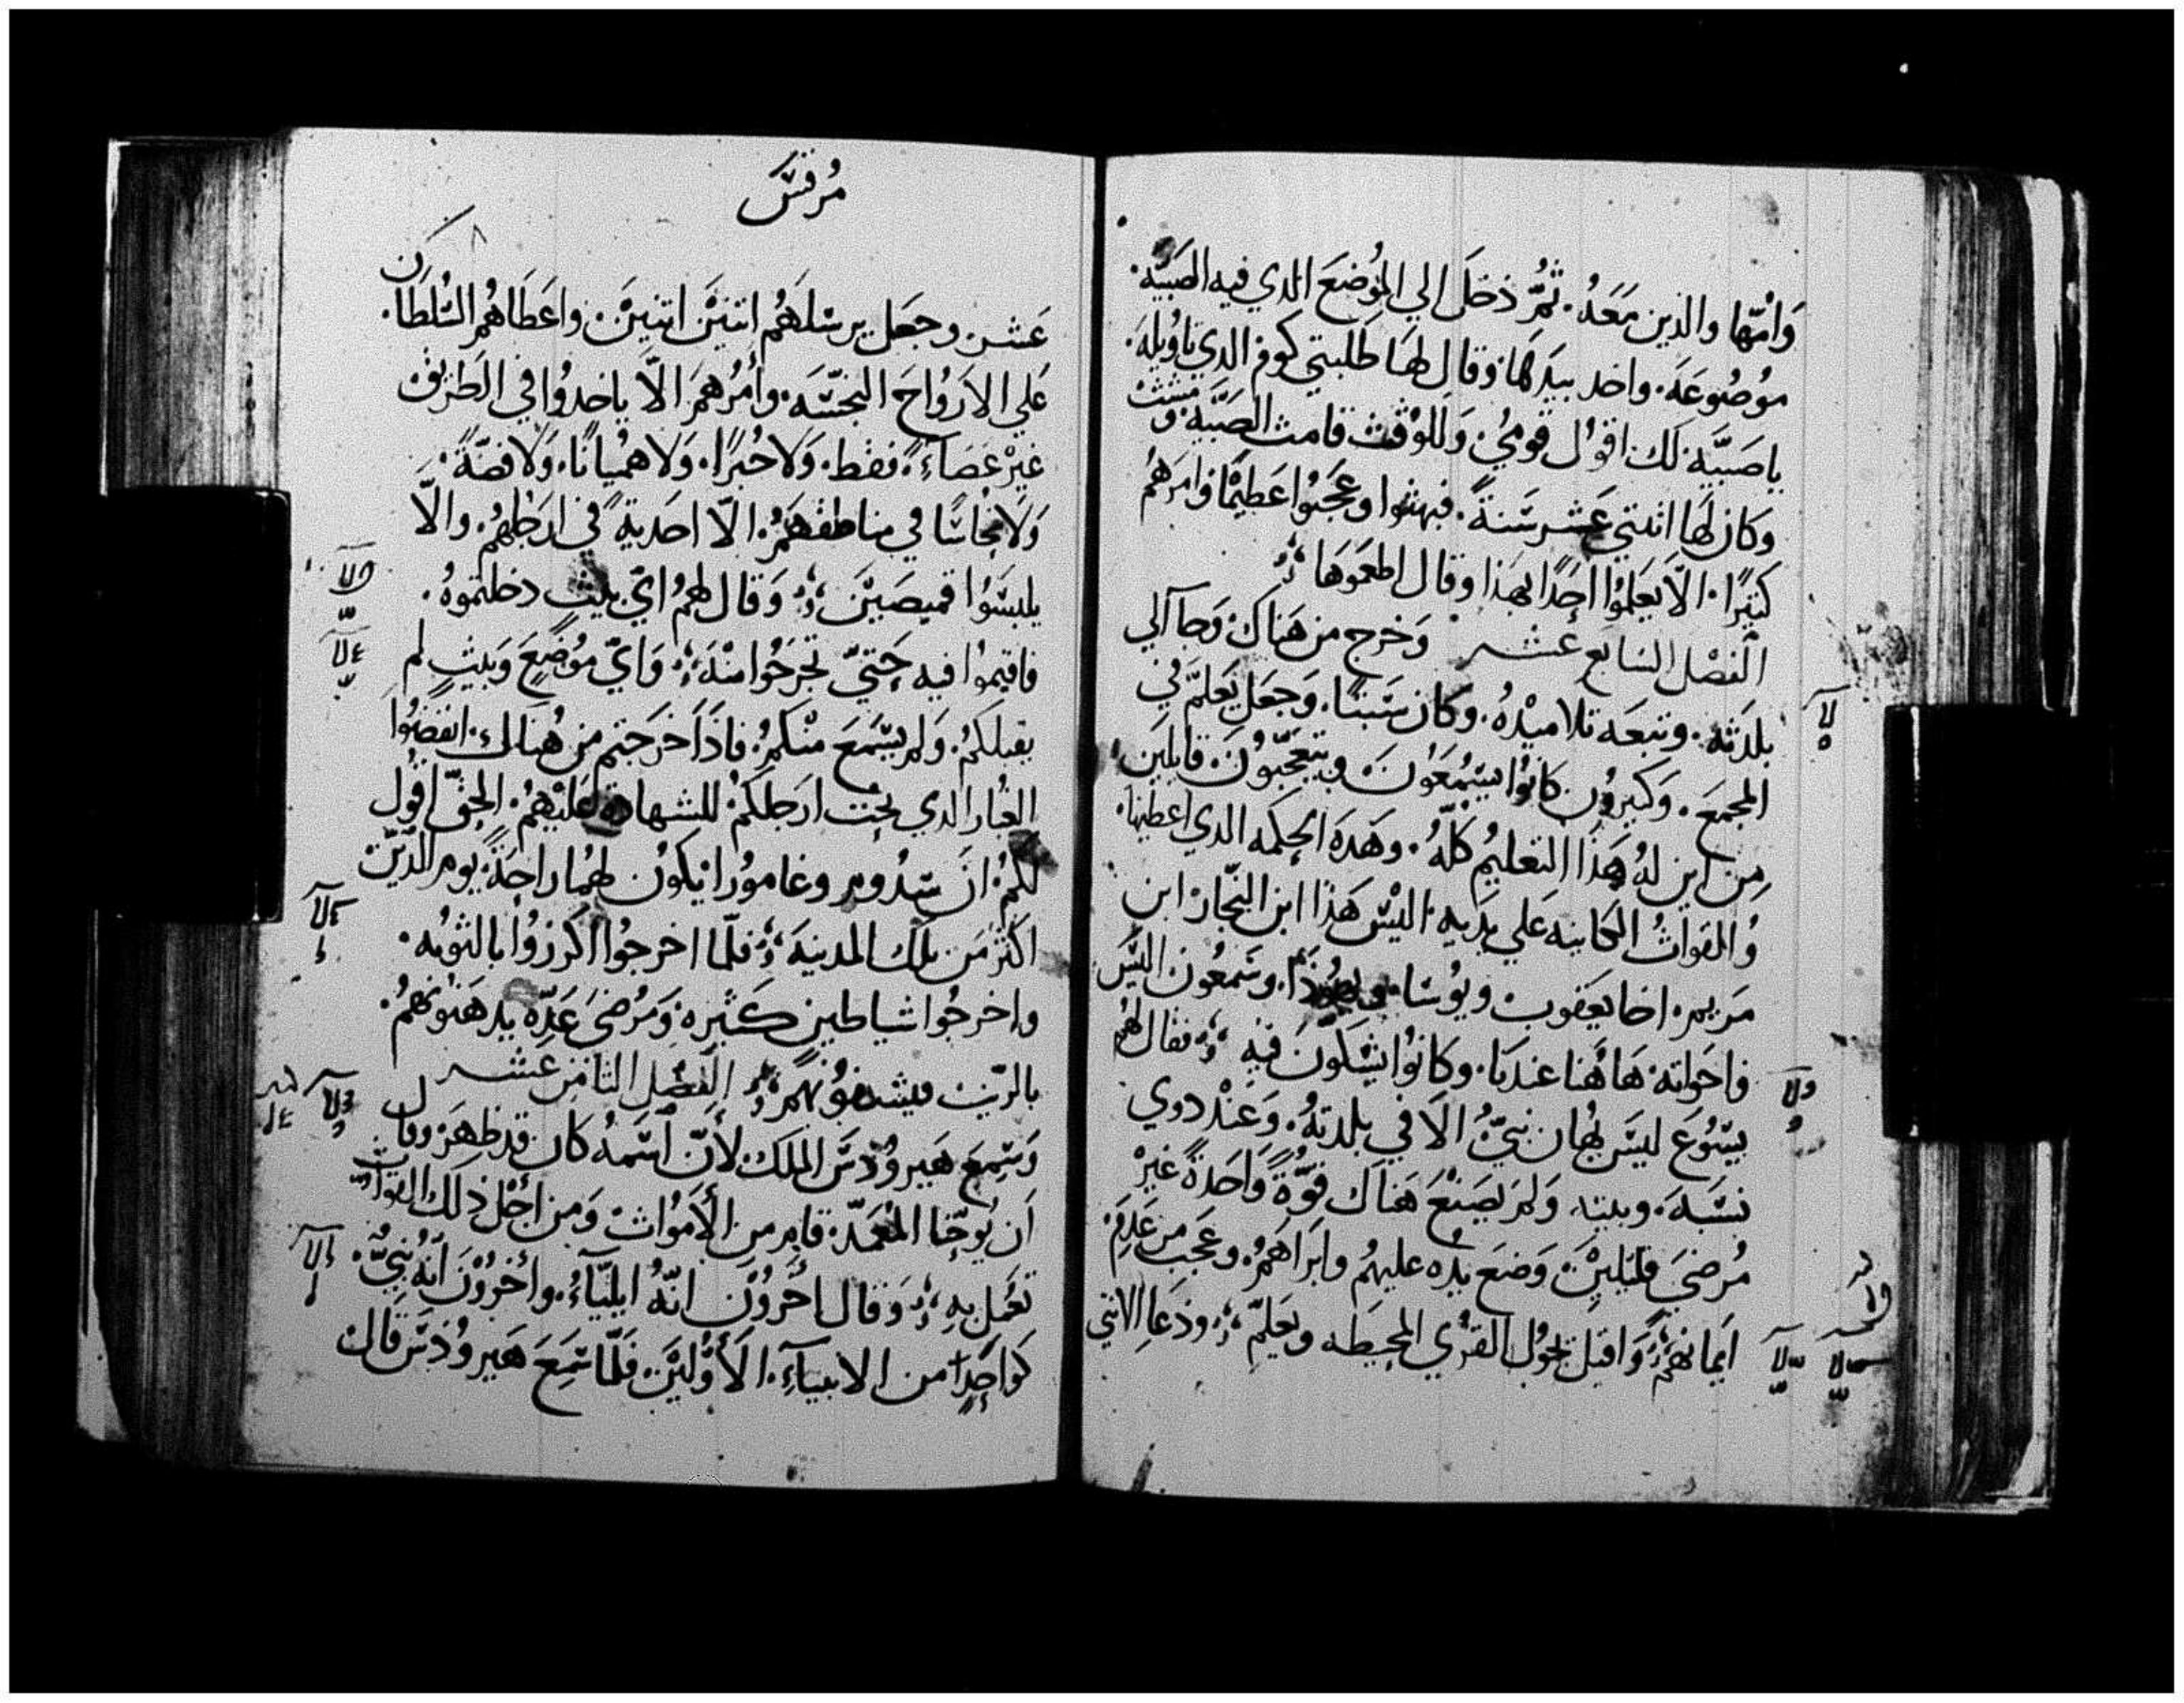 وَامُّها والذين مَعَهُ. ثمُّ دَخَلَ الي المُوضِعَ الذي فيه الصَبيّه.
موُضُوعَه. واخد بيَدَهَا وقال لهَا طَلبيتي كوم الدي تاوُيلهَ.
ياصَبيَّه لك اقوُل قوميُ. وَللوُقت قامت الصَبيَّه ومشت
وكان لهَا اثنتي عَشر سَنةً. فبهتوا وعَجَبُوا عَطيمًا وَامرَهُم
كثيرًا. الّا يَعَلمُوا احَدًا بهَذا وقال اطعَمَوهَا
الفصْل السَابع عشر وَخرج من هَناكَ وَجا الي
بلدَته. وتبعَه تلاميذهُ. وكان سَبتًا. وَجعَل يَعَلمّ في
المجمَعَ. وَكثيروُن كانوُا يسَمعَوُن ويتعَجّبوُنَ قايلين
مِن اين لهُ هَذا التعليمُ كلّهُ. وهَدهَ الحكمه الدي اعطيها.
وُالقواتُ الكاينه عَلي يدَيه. اليسْ هَذا ابن النجّار ابن
مَريم. اخا يعَقوب ويوُسَا ويهُودَا. وسَمعُون اليسَ
واخَواته هَاهُنا عندنا. وكانوُا يشكوّنَ فيه فقال لهُم
يسُوعَ ليسَ يهُان نبيٌ الَا في بلدتهُ. وَعنْد دوي
نسَبهَ. وبيته. وَلم يصَنْعَ هَناك قوّةً وَاحَدةً غيرْ
مُرضيَ قليلينَ وَضعَ يدُه عليهُم وابرَاهَمُ. وعَجب من عَدم
ايمانهمُ وَاقبل يحوُل القرُي المحيَطه ويَعلمّ ودَعَا الاثني
مُرقسَ
عَشر. وجعَل يرسَلهَمُ اثنينَ اثنينَ. واعَطَاهُم السُلطَان
عَلي الارَوُاحَ النجسَه. وأمُرُهمَ الّا ياخدُوا في الطريق
غيرْ عَصَاءً. فقط. وَلا خُبزًا. وَلا هميانًا. وَلا فضّةً.
وَلا نحُاسًا في مناطقهَمُ. الّا احَديةً في ارجَلهُم. والّا
يلبسَوُا قميصَينَ وَقال لهمُ ايّ بيتٍ دخلتموهُ.
فاقيموُا فيه حَتيّ تخرَجُوا منْهَ وَايّ موُضعٍَ وَبيتٍ لم
يقبلكمُ. وَلم يسَمعَ منكمُ. فاذَا خَرجَتم من هُناك. انفضُوا
الغُبار الدي تحت ارجَلكمُ للشهادة عَليهُم. الحقّ اقوُل
لكمُ. انَ سَدُوم وغاموُرا يكوُن لهمُا راحَةً. يوم الدّين
اكثرَ من تلك المدينهَ فلمّا اخرجوُا اكرزوُا بالتوبُه.
واخرجُوا شياطين كثيره. وَمرُضيَ عَدّه يدهَنوُنهمُ.
بالزّيت فيشفوُنهمُ الفصْل الثامن عشر
وَسَمِعَ هَيروُدَسَ الملك. لأنّ اسَمهُ كان قدظهَر. وقال
اَن يُوحّنا المُعَمدّ. قام من الأموُات. وَمن اجْل ذلك القوات
تعَمل به وَقال اخَروُن انهُّ ايليّآءُ. وأخرَوُنَ انَهُ نبيٌّ.
كوَاحِدًا من الانبيآءِ. الأوُّلينَ. فلمّا سَمِعَ هَيروُدَسَ قال